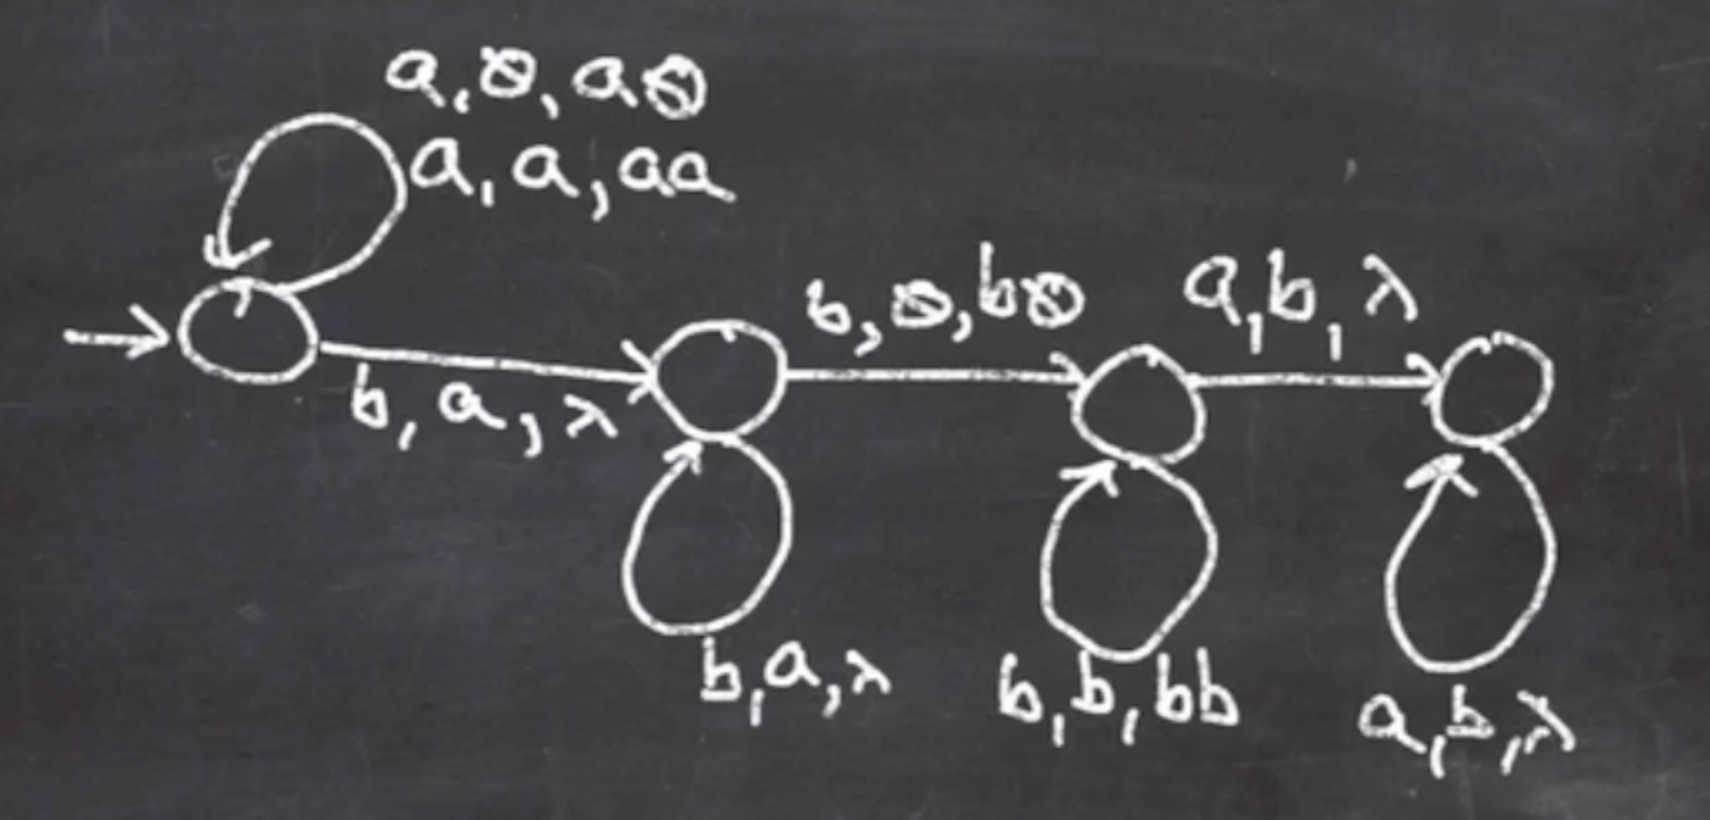 a,⦸,a⦸
a,a,aa
b,a,λ
b,⦸,b⦸
a,b,λ
b,a,λ
b,b,bb
a,b,λ